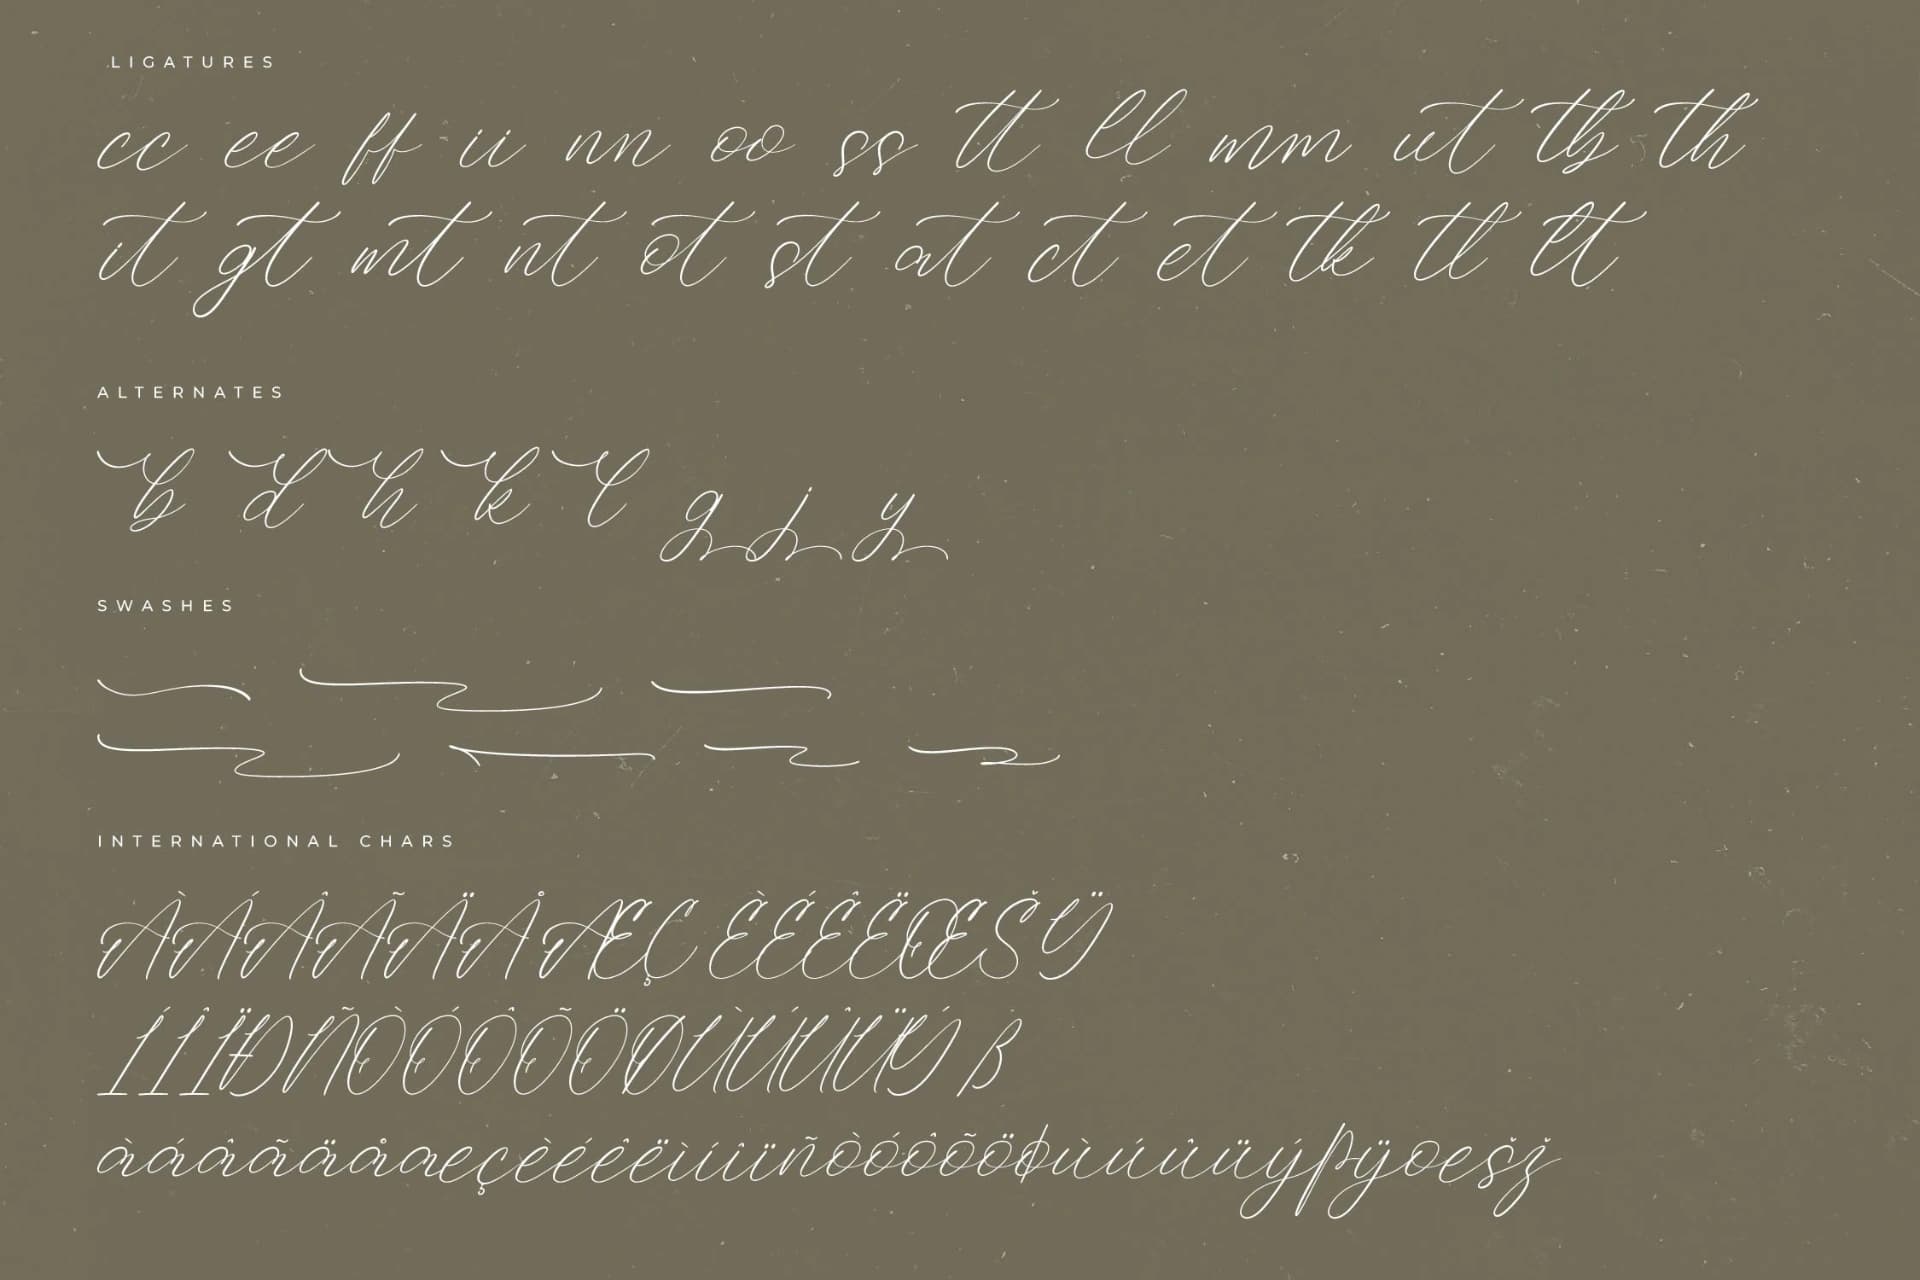 LIGATURES
cc ee ff ii nn oo ss tt ll mm ut tb th
it gt mt nt ot st at ct et tk tl lt
ALTERNATES
b d h k l g j y
SWASHES
INTERNATIONAL CHARS
ÀÁÂÃÄÅÆÇÈÉÊËŒŠŸ
ÍÎÏÐÑÒÓÔÕÖØÙÚÛÜÝß
àáâãäåæçèéêëìíîïñòóôõöøùúûüýþÿœšž